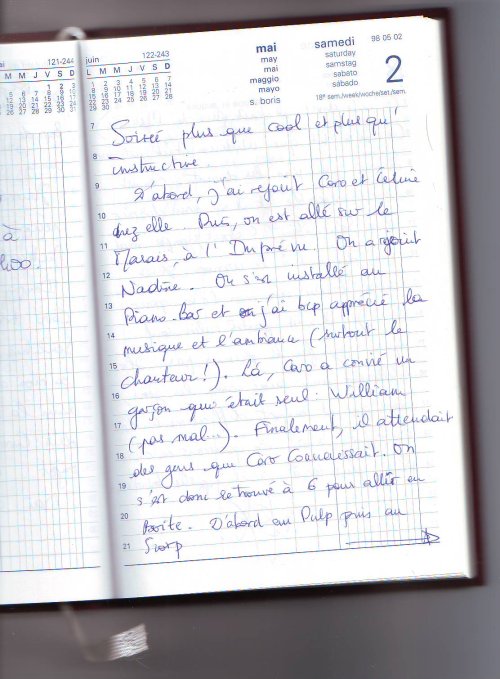 121-244
M M J V S D
juin 122-243
L M M J V S D
1 2 3 4 5 6 7
8 9 10 11 12 13 14
15 16 17 18 19 20 21
22 23 24 25 26 27 28
29 30
mai
may
mai
maggio
mayo
s. boris
samedi
saturday
samstag
sabato
sábado
98 05 02
2
18e sem./week/woche/set./sem.
à
h00.
7 Soirée plus que cool et plus qu'
8 instructive
9 D'abord, j'ai rejoint Caro et Céline
10 chez elle. Puis, on est allé sur le
11 Marais, à l'Imprévu. On a rejoint
12 Nadine. On s'est installé au
13 Piano-Bar et j'ai bcp apprécié la
14 musique et l'ambiance (surtout le
15 chanteur!). Là, Caro a convié un
16 garçon qui était seul. William
17 (pas mal...). Finalement, il attendait
18 des gens que Caro connaissait. On
19 s'est donc retrouvé à 6 pour aller en
20 boîte. D'abord au Pulp puis au
21 Scorp